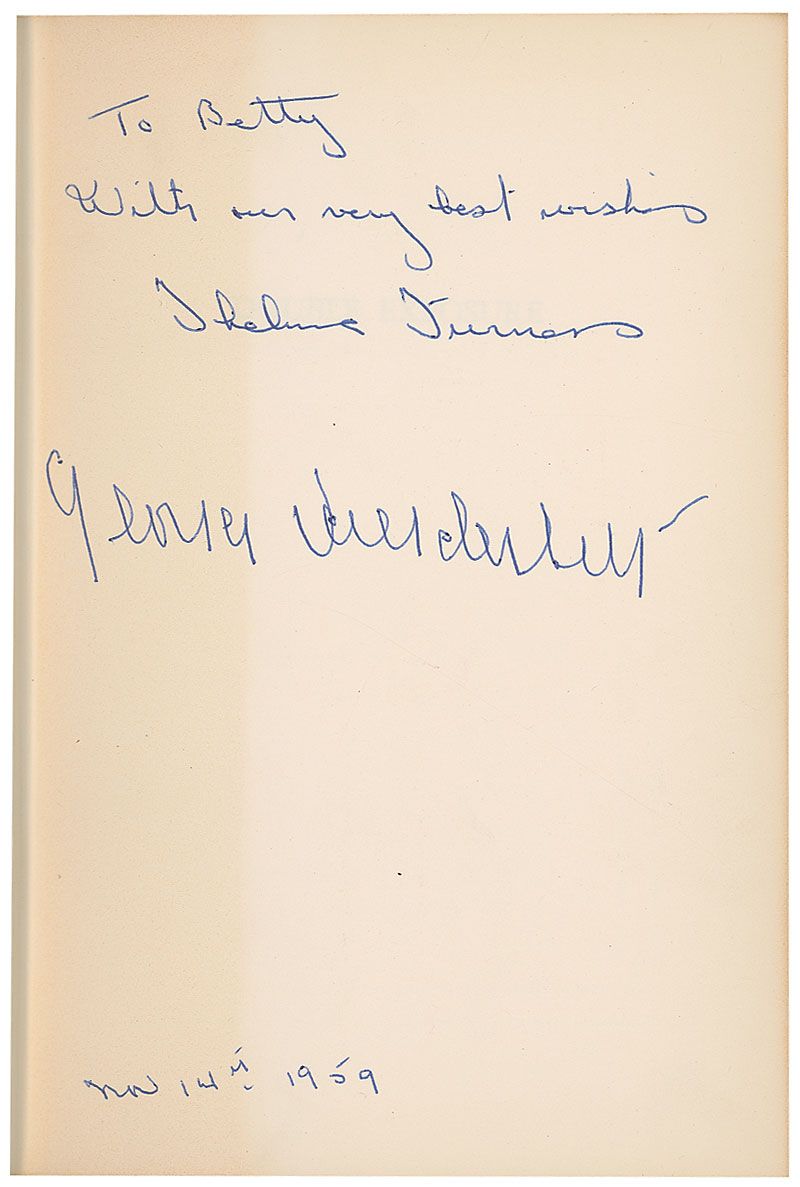 To Betty
With our very best wishes
Thelma Furness
Gloria Vanderbilt
Nov 14th 1959